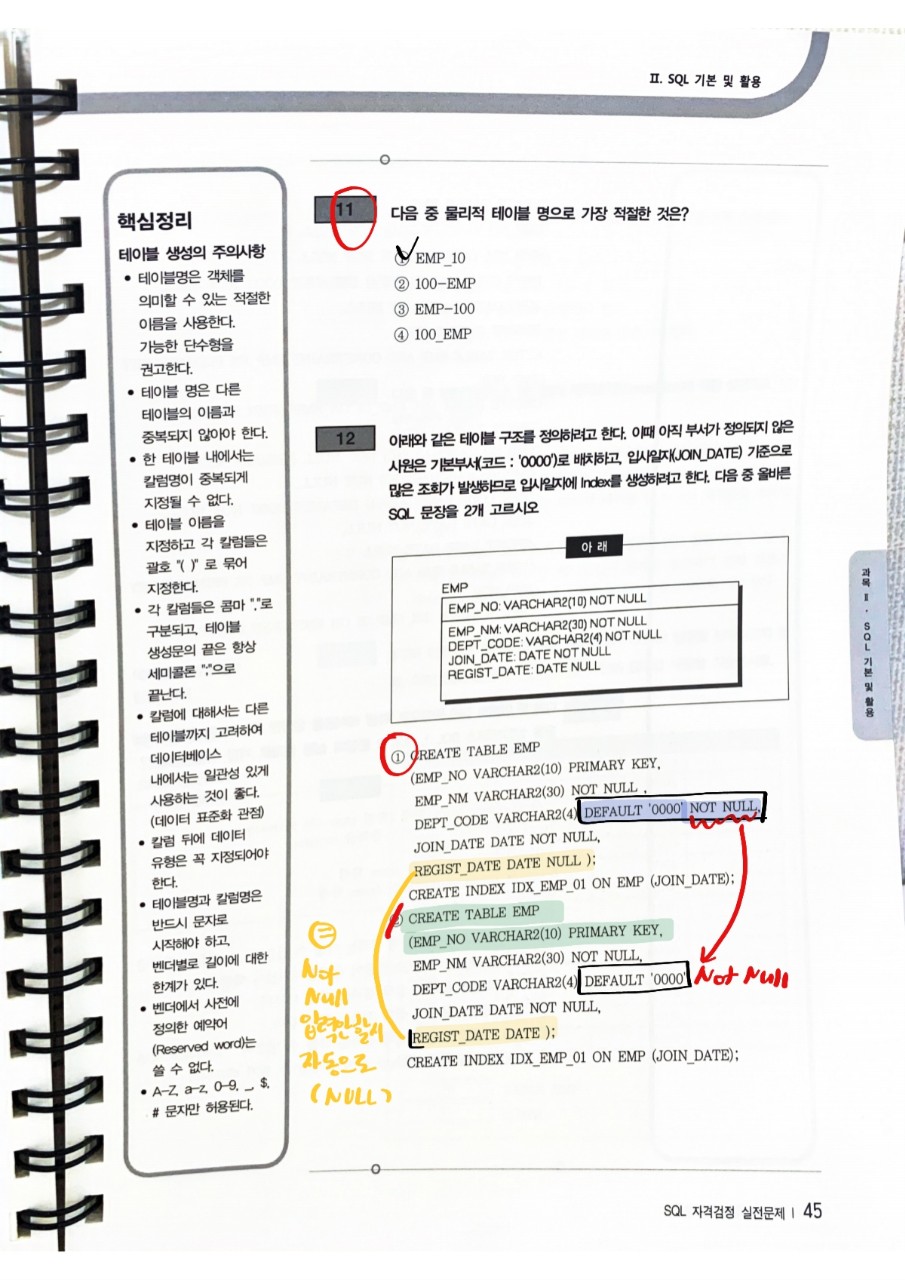 Ⅱ. SQL 기본 및 활용
핵심정리
테이블 생성의 주의사항
• 테이블명은 객체를
의미할 수 있는 적절한
이름을 사용한다.
가능한 단수형을
권고한다.
• 테이블 명은 다른
테이블의 이름과
중복되지 않아야 한다.
• 한 테이블 내에서는
칼럼명이 중복되게
지정될 수 없다.
• 테이블 이름을
지정하고 각 칼럼들은
괄호 "( )" 로 묶어
지정한다.
• 각 칼럼들은 콤마 ","로
구분되고, 테이블
생성문의 끝은 항상
세미콜론 ";"으로
끝난다.
• 칼럼에 대해서는 다른
테이블까지 고려하여
데이터베이스
내에서는 일관성 있게
사용하는 것이 좋다.
(데이터 표준화 관점)
• 칼럼 뒤에 데이터
유형은 꼭 지정되어야
한다.
• 테이블명과 칼럼명은
반드시 문자로
시작해야 하고,
벤더별로 길이에 대한
한계가 있다.
• 벤더에서 사전에
정의한 예약어
(Reserved word)는
쓸 수 없다.
• A-Z, a-z, 0-9, _, $,
# 문자만 허용된다.
11 다음 중 물리적 테이블 명으로 가장 적절한 것은?
① EMP_10
② 100-EMP
③ EMP-100
④ 100_EMP
12 아래와 같은 테이블 구조를 정의하려고 한다. 이때 아직 부서가 정의되지 않은
사원은 기본부서(코드 : '0000')로 배치하고, 입사일자(JOIN_DATE) 기준으로
많은 조회가 발생하므로 입사일자에 Index를 생성하려고 한다. 다음 중 올바른
SQL 문장을 2개 고르시오
아 래
EMP
EMP_NO: VARCHAR2(10) NOT NULL
EMP_NM: VARCHAR2(30) NOT NULL
DEPT_CODE: VARCHAR2(4) NOT NULL
JOIN_DATE: DATE NOT NULL
REGIST_DATE: DATE NULL
① CREATE TABLE EMP
(EMP_NO VARCHAR2(10) PRIMARY KEY,
EMP_NM VARCHAR2(30) NOT NULL ,
DEPT_CODE VARCHAR2(4) DEFAULT '0000' NOT NULL,
JOIN_DATE DATE NOT NULL,
REGIST_DATE DATE NULL );
CREATE INDEX IDX_EMP_01 ON EMP (JOIN_DATE);
② CREATE TABLE EMP
(EMP_NO VARCHAR2(10) PRIMARY KEY,
EMP_NM VARCHAR2(30) NOT NULL,
DEPT_CODE VARCHAR2(4) DEFAULT '0000' Not Null
JOIN_DATE DATE NOT NULL,
REGIST_DATE DATE );
CREATE INDEX IDX_EMP_01 ON EMP (JOIN_DATE);
Not
Null
입력안할시
자동으로
(NULL)
과목 Ⅱ · SQL 기본 및 활용
SQL 자격검정 실전문제 | 45